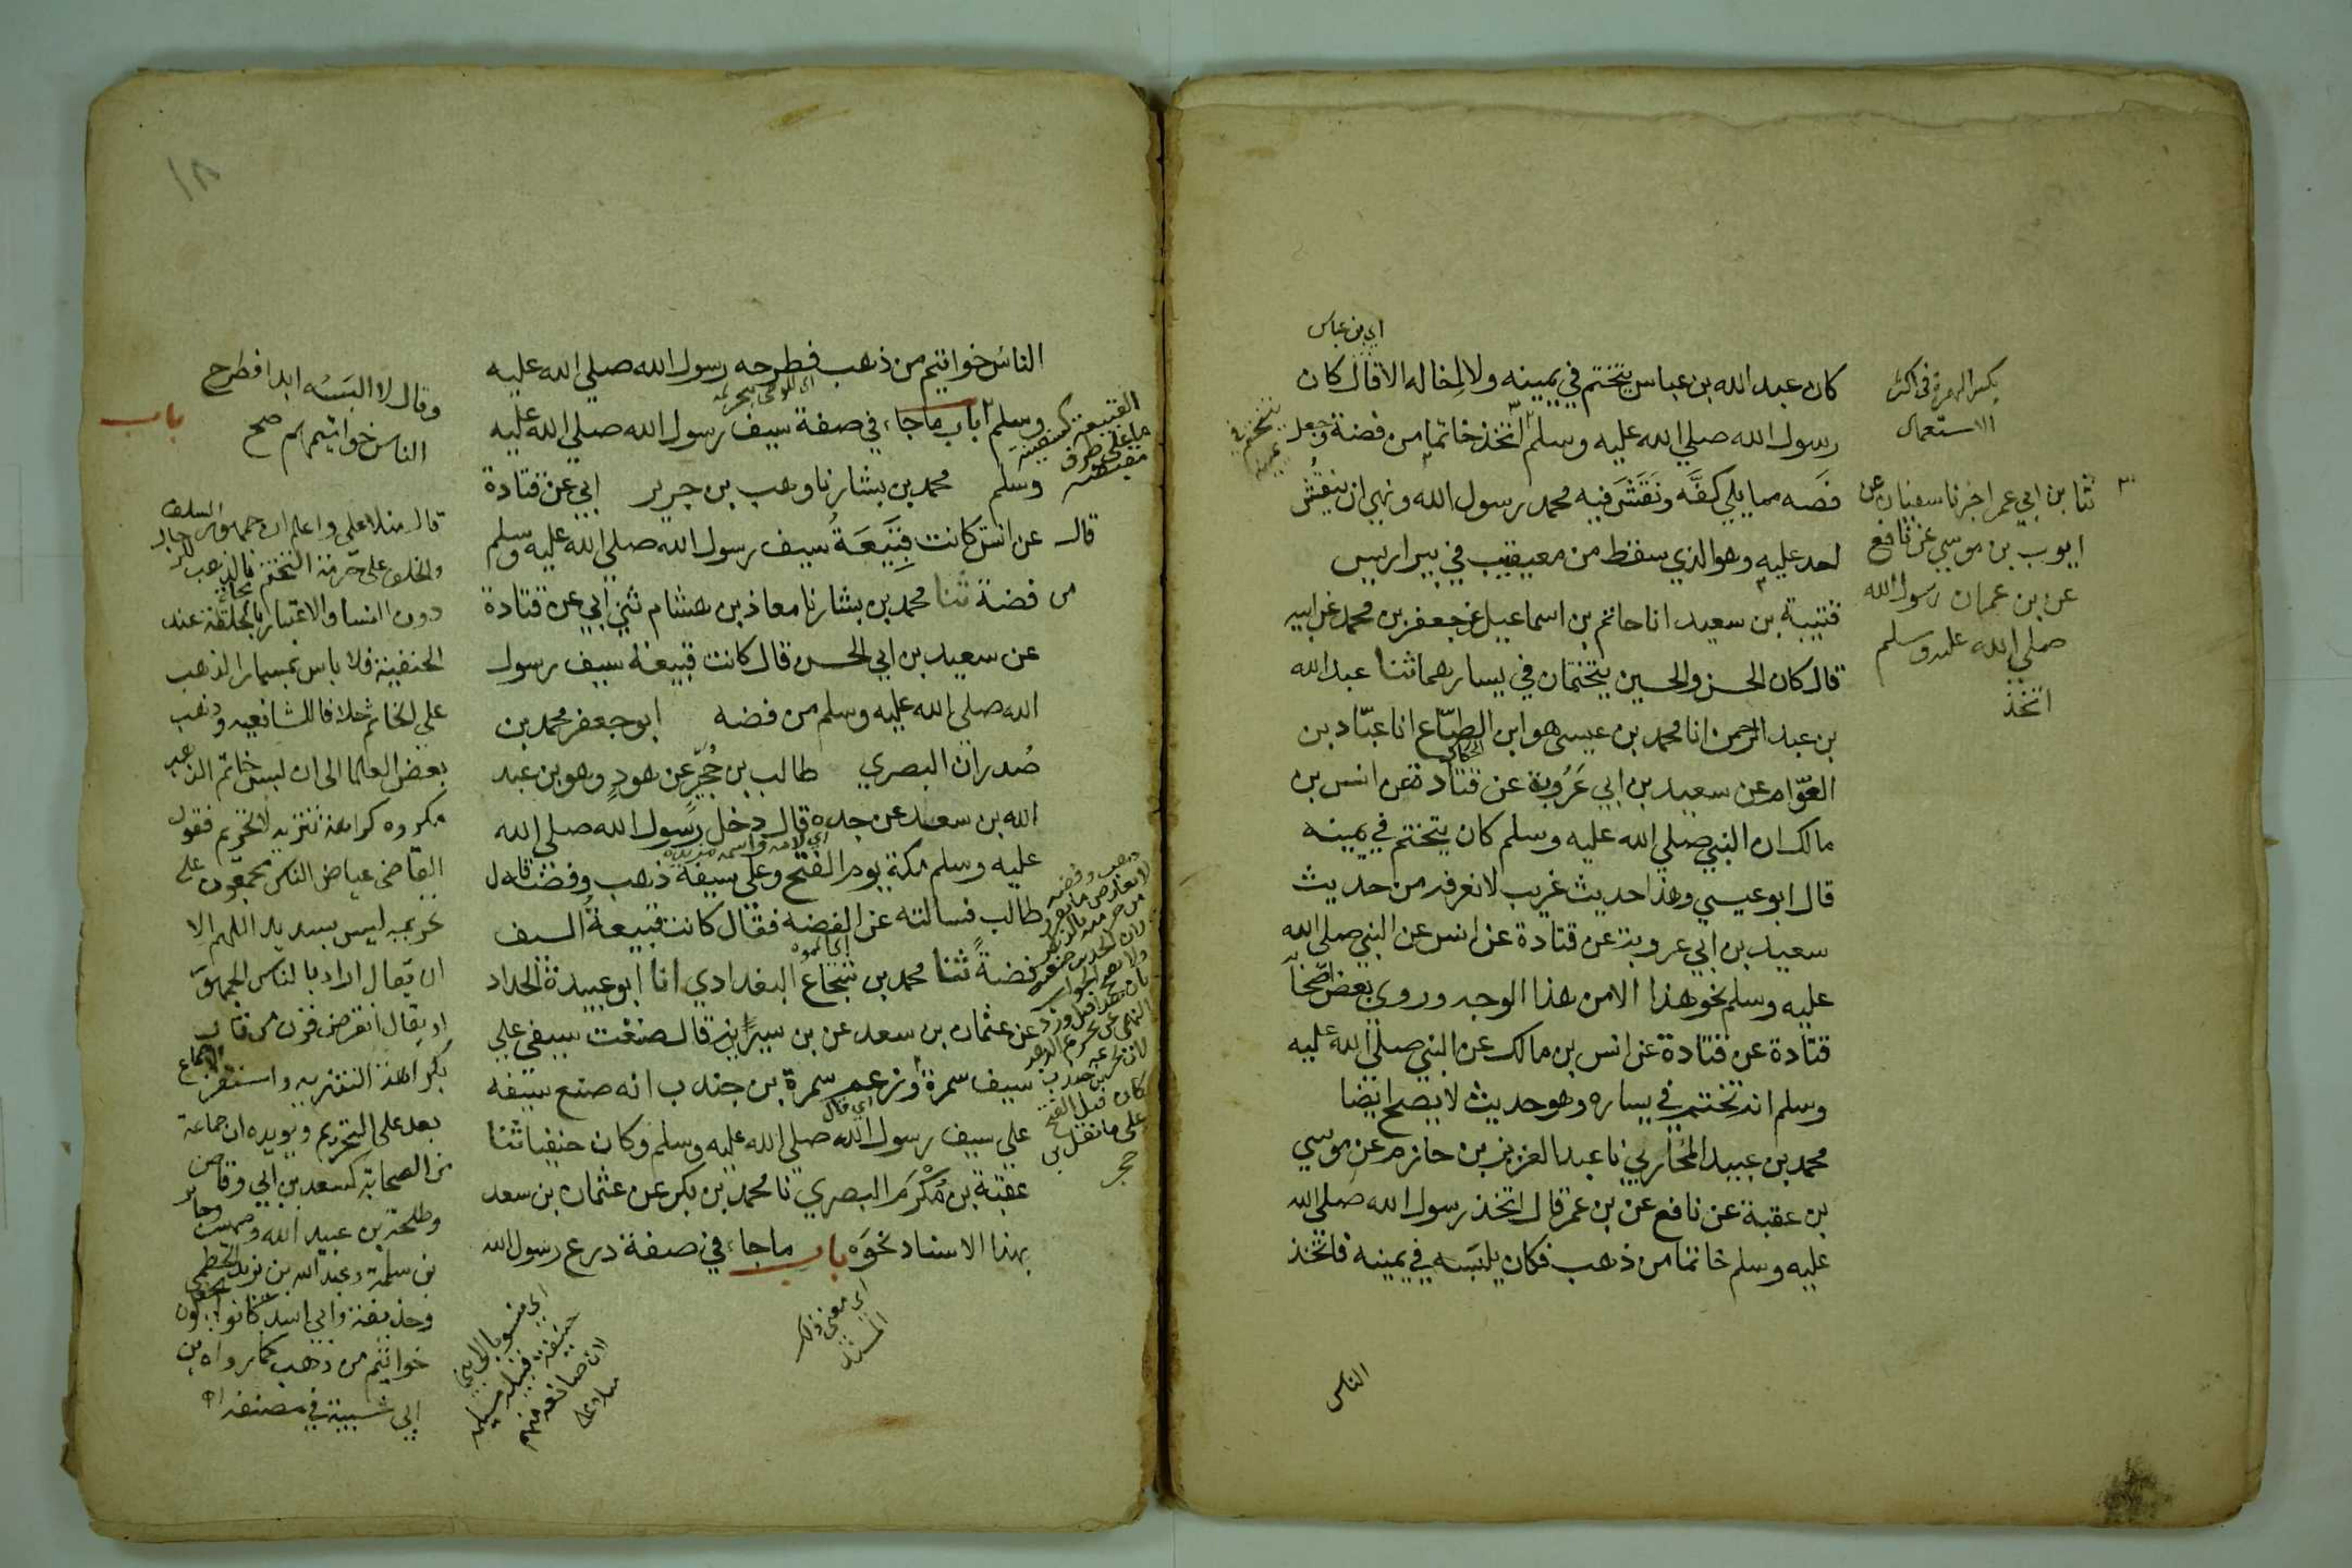 اي بن عباس
كان عبد الله بن عباس يتختم في يمينه ولا اخاله الا قال كان
رسول الله صلي الله عليه وسلم اتخذ خاتما من فضة وجعل
فصه مما يلي كفه ونقش فيه محمد رسول الله ونهي ان ينقش
احد عليه وهو الذي سقط من معيقيب في بير اريس
قتيبة بن سعيد انا حاتم بن اسماعيل عن جعفر بن محمد عن ابيه
قال كان الحسن والحسين يتختمان في يسارهما ثنا عبد الله
بن عبد الرحمن انا محمد بن عيسى هو ابن الطباع انا عباد بن
العوام عن سعيد بن ابي عروبة عن قتادة عن انس بن
مالك ان النبي صلي الله عليه وسلم كان يتختم في يمينه
قال ابو عيسي وهذا حديث غريب لا نعرفه من حديث
سعيد بن ابي عروبة عن قتادة عن انس عن النبي صلي الله
عليه وسلم نحو هذا الا من هذا الوجه وروي بعض اصحاب
قتادة عن قتادة عن انس بن مالك عن النبي صلي الله عليه
وسلم انه تختم في يساره وهو حديث لا يصح ايضا
محمد بن عبيد المحاربي نا عبد العزيز بن حازم عن موسي
بن عقبة عن نافع عن بن عمر قال اتخذ رسول الله صلي الله
عليه وسلم خاتما من ذهب فكان يلبسه في يمينه فاتخذ
الناس
بكسر الهمزة في اكثر
الاستعمال
ثنا بن ابي عمر اخبرنا سفيان عن
ايوب بن موسي عن نافع
عن بن عمر ان رسول الله
صلي الله عليه وسلم
اتخذ
الناس خواتيم من ذهب فطرحه رسول الله صلي الله عليه
وسلم باب ما جاء في صفة سيف رسول الله صلي الله عليه
وسلم محمد بن بشار نا وهب بن جرير ابي عن قتادة
عن انس كانت قبيعة سيف رسول الله صلي الله عليه وسلم
من فضة ثنا محمد بن بشار نا معاذ بن هشام ثني ابي عن قتادة
عن سعيد بن ابي الحسن قال كانت قبيعة سيف رسول
الله صلي الله عليه وسلم من فضه ابو جعفر محمد بن
صدران البصري طالب بن حجير عن هود وهو بن عبد
الله بن سعيد عن جده قال دخل رسول الله صلي الله
عليه وسلم مكة يوم الفتح وعلي سيفه ذهب وفضة قال
طالب فسالته عن الفضه فقال كانت قبيعة السيف
فضة ثنا محمد بن شجاع البغدادي انا ابو عبيدة الحداد
عن عثمان بن سعد عن بن سيرين قال صنعت سيفي علي
سيف سمرة وزعم سمرة بن جندب انه صنع سيفه
علي سيف رسول الله صلي الله عليه وسلم وكان حنفيا ثنا
عقبة بن مكرم البصري نا محمد بن بكر عن عثمان بن سعد
بهذا الاسناد نحوه باب ما جاء في صفة درع رسول الله
وقال لا البسه ابدا فطرح
الناس خواتيمهم صح
باب
قال منلا علي واعلم ان جمهور السلف
والخلف علي حرمة التختم بالذهب للرجال
دون النسا والاعتبار بالحلقة عند
الحنفية فلا باس بمسمار الذهب
علي الخاتم خلافا للشافعيه وذهب
بعض العلما الى ان لبس خاتم الذهب
مكروه كراهة تنزيه لا تحريم فقول
القاضي عياض الناس مجمعون علي
تحريمه ليس بسديد اللهم الا
ان يقال اراد بالناس الجمهور
او يقال انقرض قرن من قال
بكراهة التنزيه واستقر الاجماع
بعد على التحريم ويؤيده ان جماعة
من الصحابة كسعد بن ابي وقاص
وطلحة بن عبيد الله وصهيب وجابر
بن سلمة وعبد الله بن يزيد الخطمي
وحذيفة وابي اسيد كانوا يجعلون
خواتيم من ذهب كما رواه بن
ابي شيبة في مصنفه اه
اي منسوبا الى بني
حنيفة قبيلة مسيلمة
لان صانعه منهم
منلا علي
اي معنى ذلك
المسند
١٨